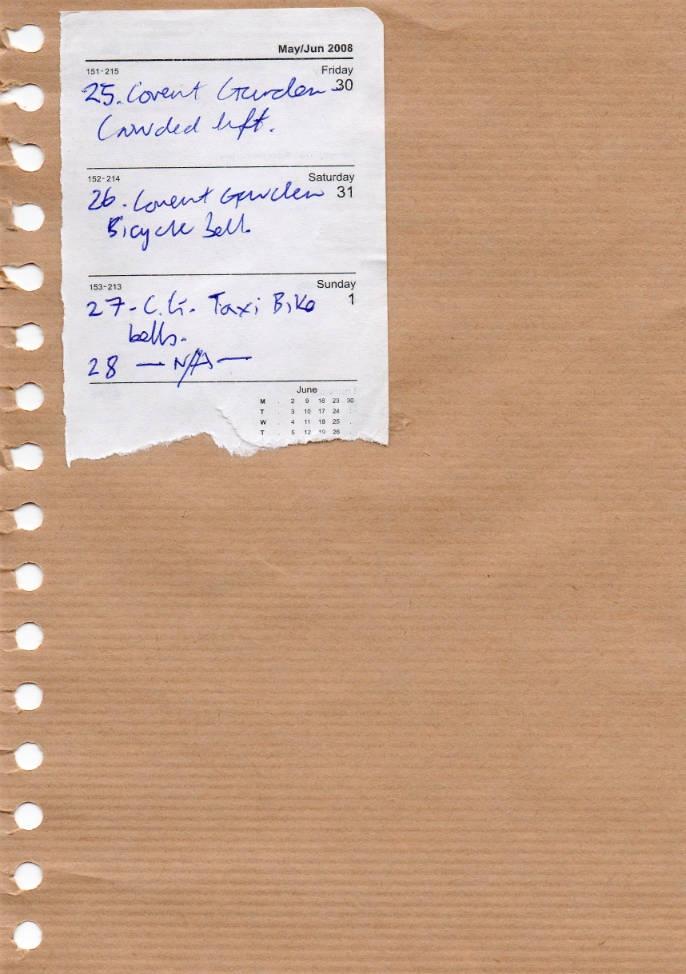 May/Jun 2008
151-215 Friday
25. Covent Garden 30
Crowded lift.
152-214 Saturday
26. Covent Garden 31
Bicycle bell.
153-213 Sunday
27- C.G. Taxi Bike 1
bells.
28 — N/A —
June
M . 2 9 16 23 30
T . 3 10 17 24 .
W . 4 11 18 25 .
T . 5 12 19 26 .